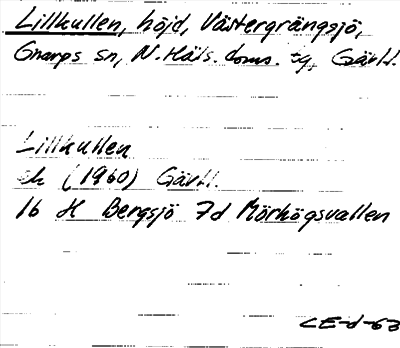 Lillkullen, höjd, Västergrängsjö,
Gnarps sn, N. Häls. doms. tg, Gävl.
Lillkullen
ek (1960) Gävl.
16 H Bergsjö 7d Mörhögsvallen
CE-d-63